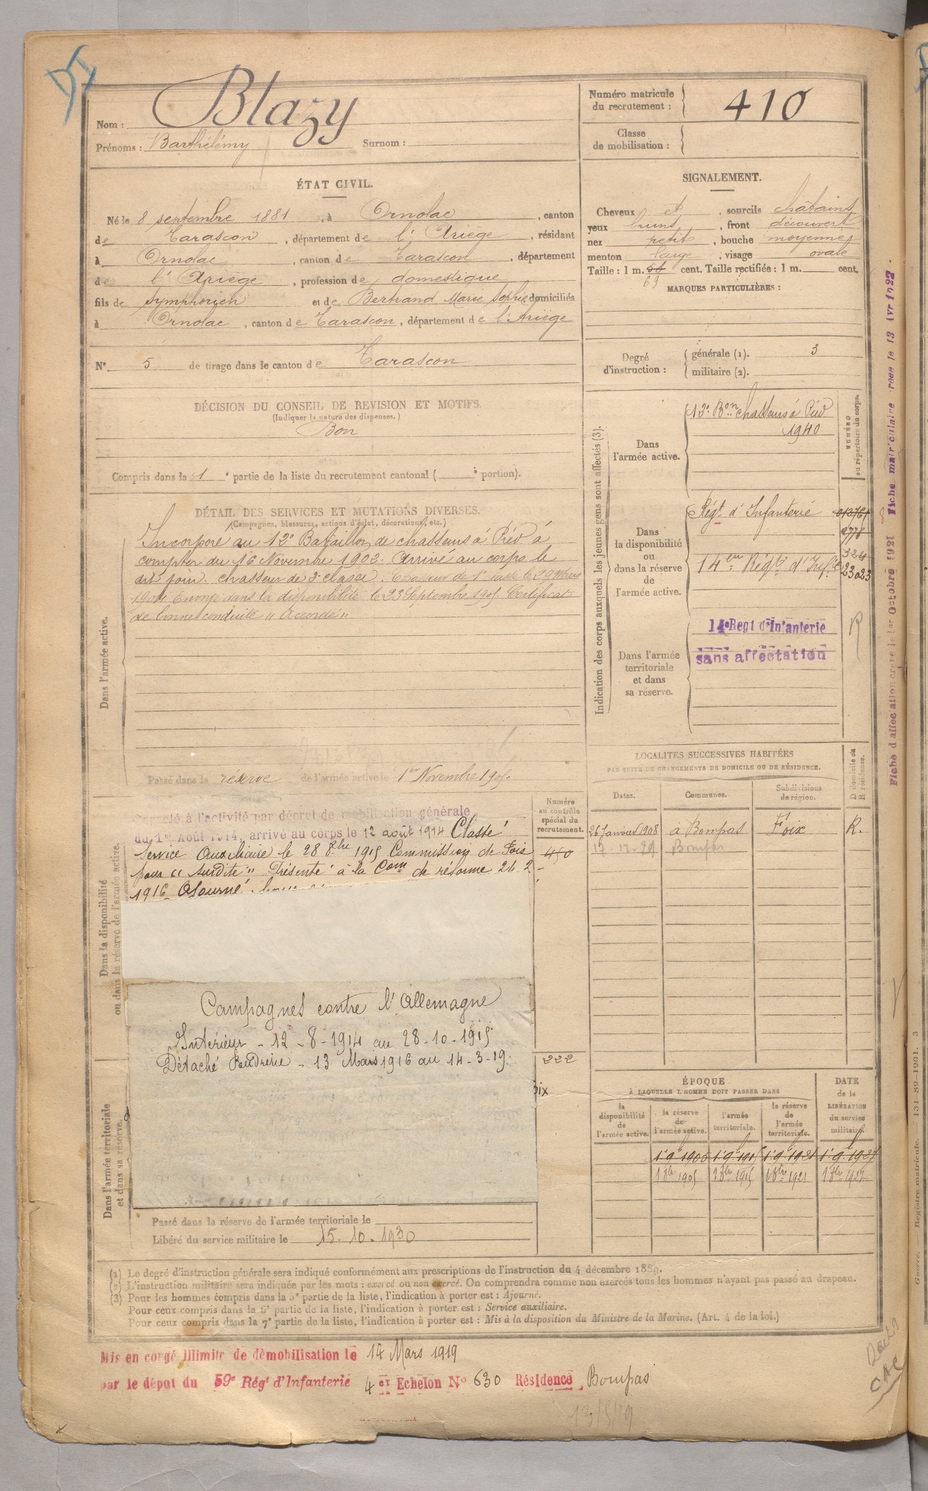 Nom : Blazy
Prénoms : Barthélémy Surnom :
Numéro matricule du recrutement : 410
Classe de mobilisation :
ÉTAT CIVIL.
Né le 8 septembre 1881, à Ornolac, canton
de Tarascon, département de l'Ariège, résidant
à Ornolac, canton de Tarascon, département
de l'Ariège, profession de domestique
fils de Symphorien et de Bertrand Marie Sophie domiciliés
à Ornolac, canton de Tarascon, département de l'Ariège
N° 5 de tirage dans le canton de Tarascon
SIGNALEMENT.
Cheveux et, sourcils châtains
yeux bruns, front découvert
nez petit, bouche moyenne
menton large, visage ovale
Taille : 1 m. 63 cent. Taille rectifiée : 1 m. cent.
MARQUES PARTICULIÈRES :
Degré d'instruction : générale (1). 3
militaire (2).
DÉCISION DU CONSEIL DE REVISION ET MOTIFS.
(Indiquer la nature des dispenses.)
Bon
Compris dans la 1e partie de la liste du recrutement cantonal ( e portion).
DÉTAIL DES SERVICES ET MUTATIONS DIVERSES.
(Campagnes, blessures, actions d'éclat, décorations, etc.)
Dans l'armée active.
Incorporé au 12e Bataillon de chasseurs à Pied à
compter du 16 Novembre 1902. Arrivé au corps le
dit jour. chasseur de 2e classe.
Envoyé dans la disponibilité le 23 Septembre 1905 Certificat
de bonne conduite "Accordé"
Passé dans la réserve de l'armée active le 1er Novembre 1905
Indication des corps auxquels les jeunes gens sont affectés (3).
Dans l'armée active.
12e Bon chasseurs à Pied
1940
NUMÉRO au répertoire du corps.
Dans la disponibilité ou dans la réserve de l'armée active.
Régt d'Infanterie
14em Régt d'Infie
23023
Dans l'armée territoriale et dans sa réserve.
14e Regt d'Infanterie
sans affectation
R
Fiche d'affectation créée le 1er Octobre 1921 Fiche matriculaire le 13 Avr 1922.
Dans la disponibilité ou dans la réserve de l'armée active.
Rappelé à l'activité par décret de mobilisation générale
du 1er Août 1914, arrivé au corps le 12 août 1914 Classé
service Auxiliaire le 28 8bre 1915 Commission de Foix
pour "Surdité" Présenté à la Com de réforme 26-2-
1916 Ajourné
Numéro au contrôle spécial du recrutement.
450
Campagnes contre l'Allemagne
Intérieur - 12-8-1914 au 28-10-1915
Détaché Poudrerie - 13 Mars 1916 au 14-3-19.
222
oix
LOCALITÉS SUCCESSIVES HABITÉES
PAR SUITE DE CHANGEMENTS DE DOMICILE OU DE RÉSIDENCE.
Dates. Communes. Subdivisions de région. D domicile ou R résidence.
26 Janvier 1908 à Bompas Foix R.
Bompas
ÉPOQUE
À LAQUELLE L'HOMME DOIT PASSER DANS
DATE de la LIBÉRATION du service militaire.
la disponibilité de l'armée active. la réserve de l'armée active. l'armée territoriale. la réserve de l'armée territoriale.
Dans l'armée territoriale et dans sa réserve.
Passé dans la réserve de l'armée territoriale le
Libéré du service militaire le 15.10.1930
(1) Le degré d'instruction générale sera indiqué conformément aux prescriptions de l'instruction du 4 décembre 1889.
(2) L'instruction militaire sera indiquée par les mots : exercé ou non exercé. On comprendra comme non exercés tous les hommes n'ayant pas passé au drapeau.
(3) Pour les hommes compris dans la 2e partie de la liste, l'indication à porter est : Ajourné.
Pour ceux compris dans la 5e partie de la liste, l'indication à porter est : Service auxiliaire.
Pour ceux compris dans la 7e partie de la liste, l'indication à porter est : Mis à la disposition du Ministre de la Marine. (Art. 4 de la loi.)
Mis en congé illimité de démobilisation le 14 Mars 1919
par le dépôt du 59e Régt d'Infanterie 4e Echelon N° 630 Résidence Bompas